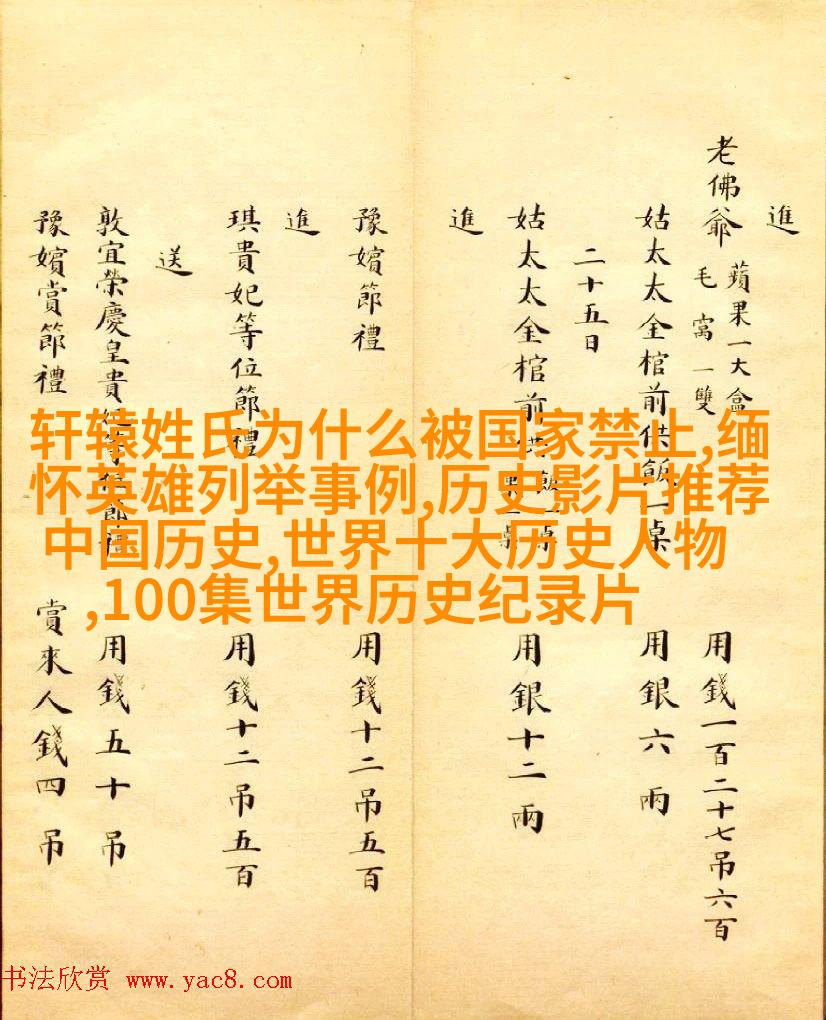 進
老佛爺 蘋果一大盒 毛窩一雙 用錢一百二十七吊六百
姑太太金棺前供飯一桌 用銀六兩
二十五日
姑太太金棺前供飯 果一桌 用銀十二兩
進
豫嬪節禮 用錢十二吊五百
進
琪貴妃等位節禮 用錢十二吊五百
送
敦宜榮慶皇貴妃等位節禮 用錢五十吊
豫嬪賞節禮 賞來人錢四吊
轩辕姓氏为什么被国家禁止,缅
怀英雄列举事例,历史影片推荐
中国历史,世界十大历史人物
,100集世界历史纪录片
书法欣赏 www.yac8.com